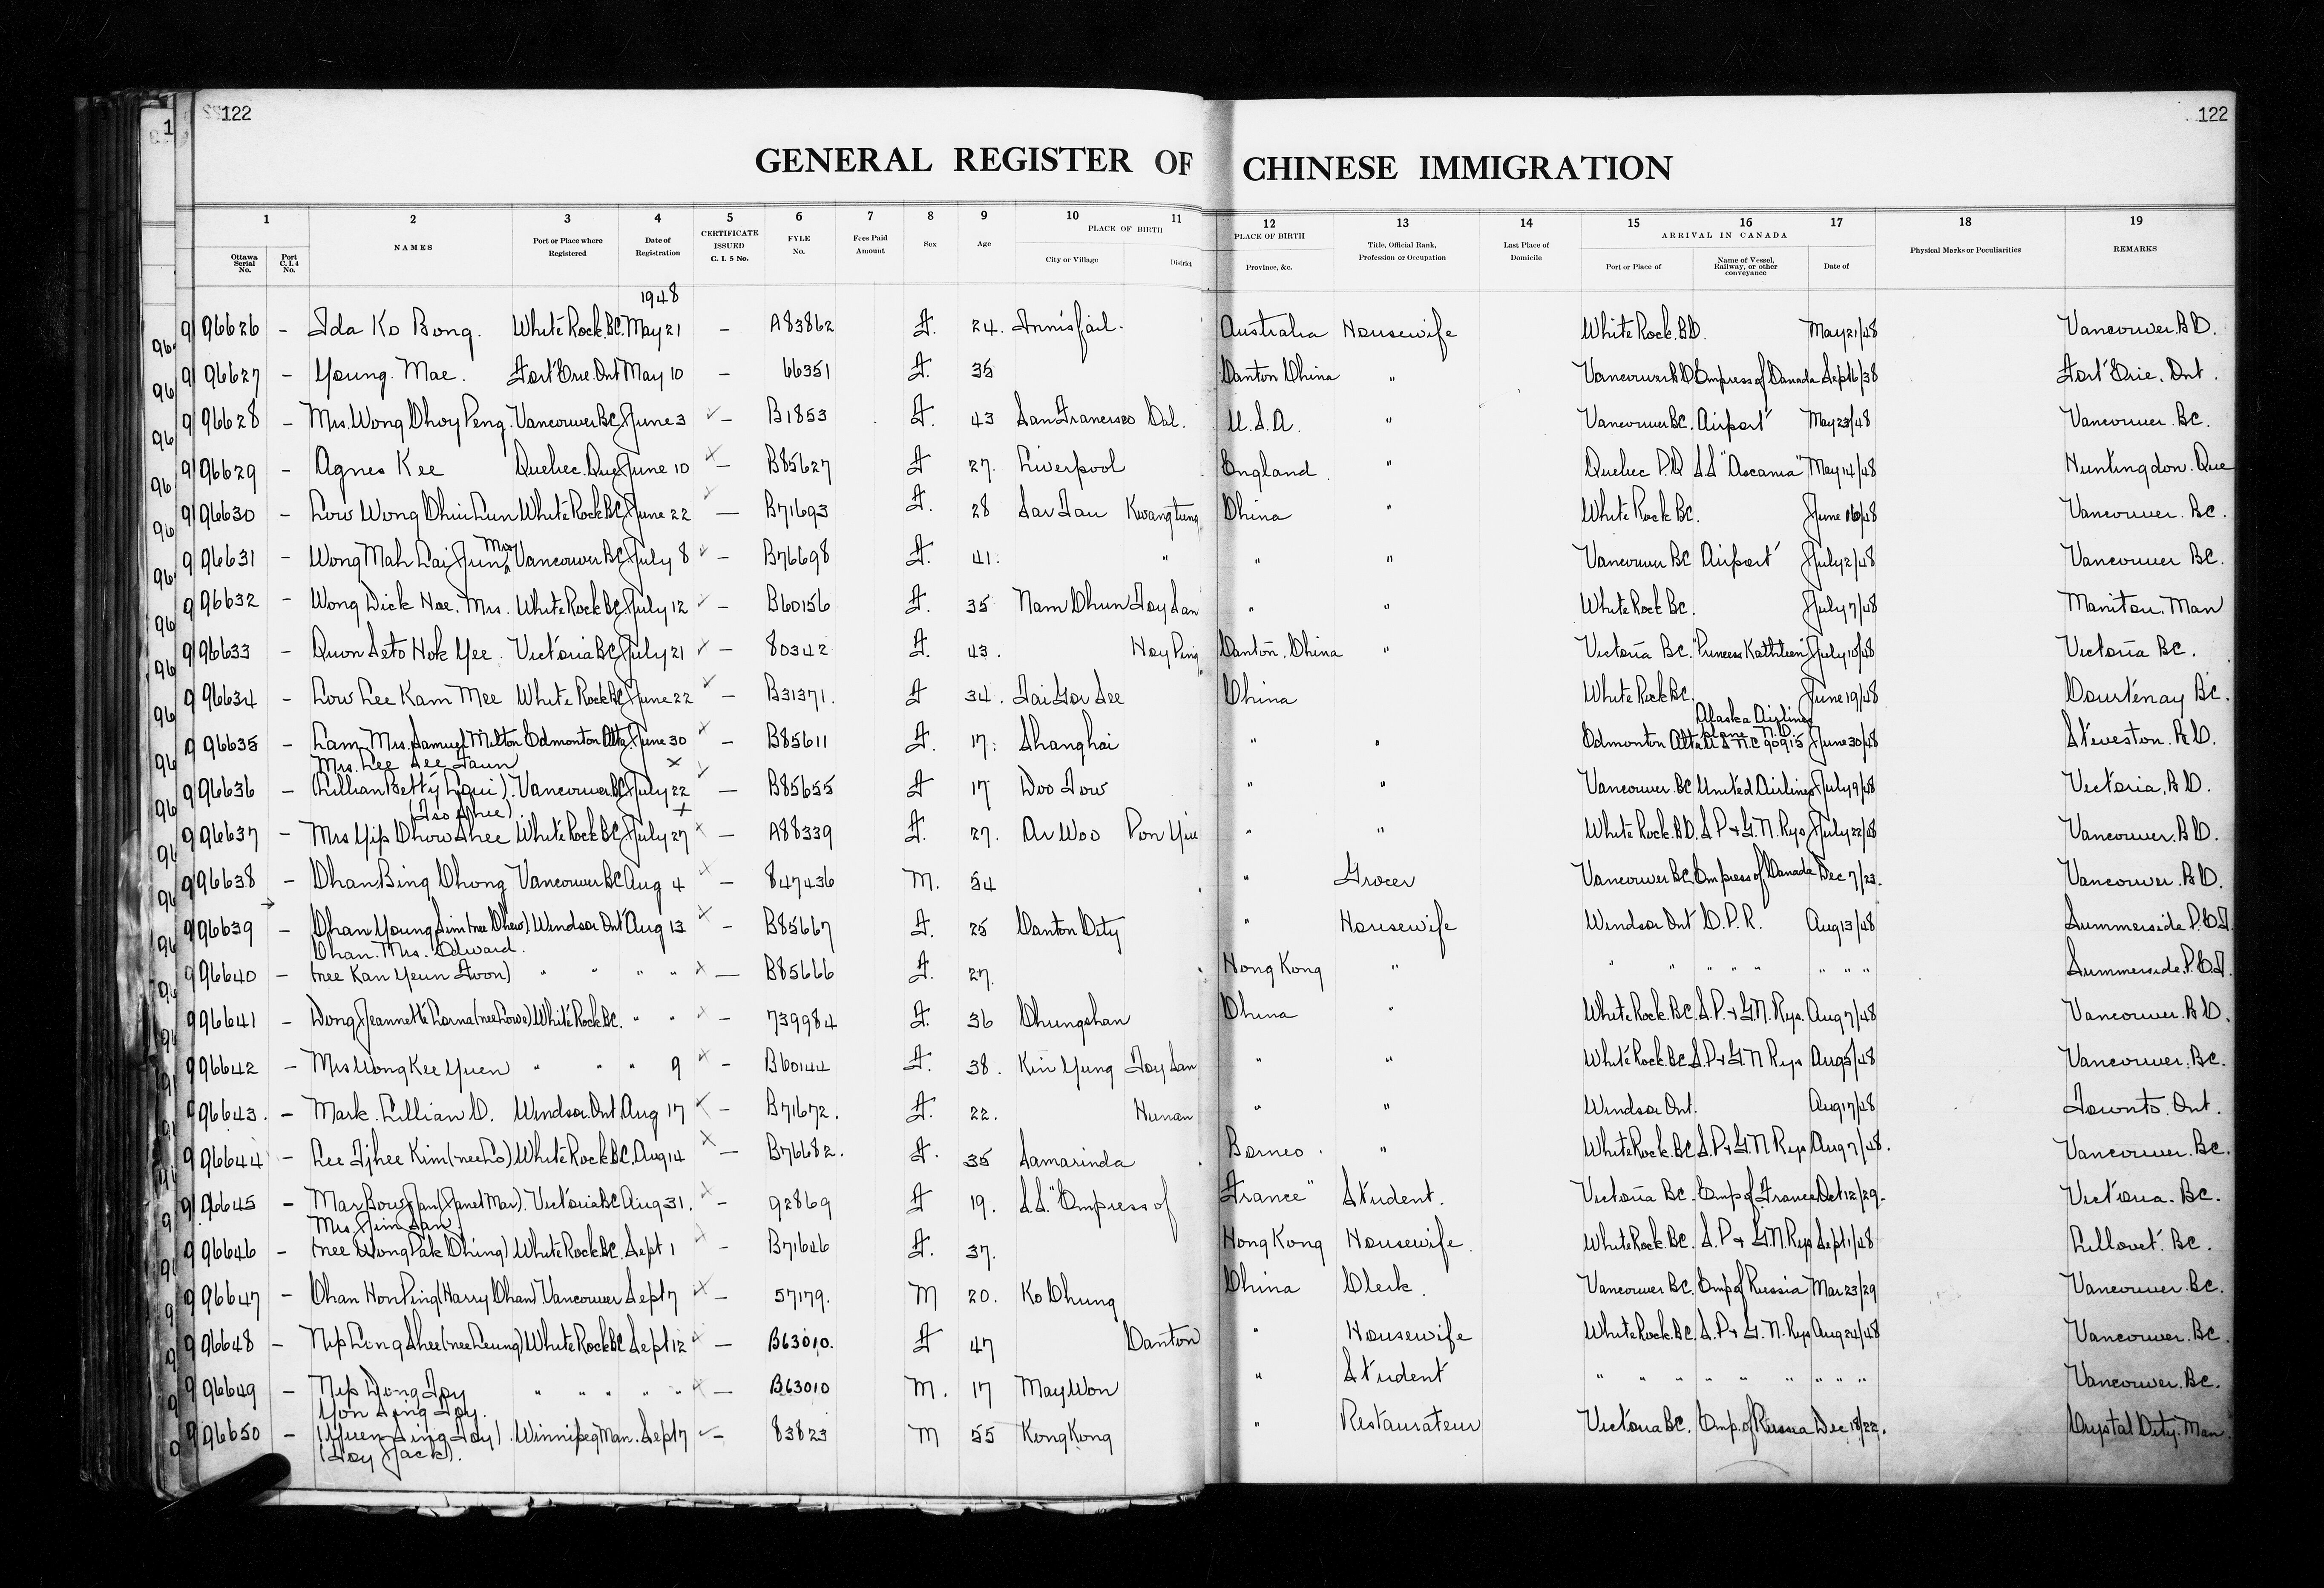 122
122
GENERAL REGISTER OF CHINESE IMMIGRATION
1 2 3 4 5 6 7 8 9 10 11 12 13 14 15 16 17 18 19
Ottawa Serial No. Port C. I. 4 No. NAMES Port or Place where Registered Date of Registration CERTIFICATE ISSUED C. I. 5 No. FYLE No. Fees Paid Amount Sex Age PLACE OF BIRTH City or Village District PLACE OF BIRTH Province, &c. Title, Official Rank, Profession or Occupation Last Place of Domicile ARRIVAL IN CANADA Port or Place of Name of Vessel, Railway, or other conveyance Date of Physical Marks or Peculiarities REMARKS
1948
96626 - Ida Ko Bong. White Rock. BC. May 21 - A83862 F. 24. Innisfail. Australia Housewife White Rock. BC. May 21/48 Vancouver. BC.
96627 - Young. Mae. Fort Erie. Ont May 10 - 66351 F. 35 Canton China " Vancouver BC Empress of Canada Sept 16/38 Fort Erie. Ont.
96628 - Mrs. Wong Choy Peng. Vancouver BC. June 3 - B1853 F. 43 San Francisco Cal. U.S.A. " Vancouver BC. Airport May 23/48 Vancouver. BC.
96629 - Agnes Kee Quebec. Que June 10 - B85627 F 27. Liverpool England " Quebec P.Q SS "Ascania" May 14/48 Huntingdon. Que
96630 - Low Wong Chui Lun White Rock BC June 22 - B71693 F. 28 Sar Tau Kwangtung China " White Rock BC. June 16/48 Vancouver. BC.
96631 - Wong Mah Lai Jun, Mrs Vancouver BC. July 8 - B76698 F. 41. " " " Vancouver BC Airport July 2/48 Vancouver BC.
96632 - Wong Dick Hoe. Mrs. White Rock BC July 12 - B60156 F. 35 Nam Chun Toy San " " White Rock BC. July 7/48 Manitou. Man
96633 - Quon Seto Hok Yee. Victoria BC July 21 - 80342 F. 43. Hoy Ping Canton. China " Victoria BC. "Princess Kathleen" July 10/48 Victoria BC.
96634 - Low Lee Kam Mee White Rock BC June 22 - B31371. F 34. Tai Gor See China White Rock BC. June 19/48 Courtenay BC.
96635 - Lam, Mrs. Samuel Milton Edmonton Alta. June 30 - B85611 F. 17. Shanghai " " Edmonton Alta Alaska Airlines plane N.C. U S N.C 90915 June 30/48 Steveston. BC.
Mrs. Lee See Faun x
96636 - (Lillian Betty Loui). Vancouver BC July 22 - B85655 F 17 Doo Tow " " Vancouver. BC United Airlines July 9/48 Victoria, BC.
(Tso Shee) x
96637 - Mrs Yip Chow Shee White Rock BC July 27 - A88339 F. 27. Au Woo Pon Yue " " White Rock. BC. S.P. + G.N. Rys July 22/48 Vancouver. BC.
96638 - Chan Bing Chong Vancouver BC Aug 4 - 847436 M. 54 " Grocer Vancouver BC. Empress of Canada Dec 7/23. Vancouver. BC.
96639 - Chan Young Sim (nee Chew) Windsor Ont Aug 13 - B85667 F. 25 Canton City " Housewife Windsor Ont C.P.R. Aug 13/48 Summerside P.E.I.
Chan. Mrs. Edward.
96640 - (nee Kan Yeun Foon) " " " " - B85666 F. 27. Hong Kong " " " " " " " " " Summerside. P.E.I.
96641 - Wong Jeannette Lorna (nee Lowe) White Rock BC. " " - 739984 F. 36 Chungshan China " White Rock. BC. S.P. + G.N. Rys. Aug 7/48 Vancouver. BC.
96642 - Mrs Wong Kee Yuen " " " 9 - B60144 F. 38. Kin Yung Toy San " " White Rock. BC S.P + G.N Rys Aug 5/48 Vancouver. BC.
96643. - Mark. Lillian C. Windsor. Ont. Aug 17 - B71672. F. 22. Hunan " " Windsor Ont. Aug 17/48 Toronto. Ont.
96644 - Lee Tjhee Kim (nee Lo) White Rock BC. Aug 14 - B76682. F. 35 Samarinda Borneo. " White Rock. BC S.P + G.N Rys Aug 7/48. Vancouver. BC.
96645 - Mar Bow Jan (Janet Mar). Victoria BC Aug 31. - 92869 F 19. S.S. "Empress of France" Student. Victoria BC. Emp of France Oct 12/29. Victoria. BC.
Mrs Jim San.
96646 - (nee Wong Pak Ching) White Rock BC. Sept 1 - B71646 F. 37. Hong Kong Housewife. White Rock. BC. S.P + G.N. Rys Sept 1/48 Lillooet. BC.
96647 - Chan Hon Ping (Harry Chan). Vancouver Sept 7 - 57179. M 20. Ko Chung China Clerk. Vancouver BC. Emp of Russia Mar 23/29 Vancouver. BC.
96648 - Nip Ling Shee (nee Leung) White Rock BC Sept 12 - B63010. F 47 Canton " Housewife White Rock. BC. S.P. + G.N. Rys Aug 24/48 Vancouver. BC
96649 - Nip Wong Foy " " " " " - B63010 M. 17 May Won " Student " " " " " " " " " Vancouver. BC.
Yon Sing Toy.
96650 - (Yuen Sing Toy). Winnipeg Man. Sept 7 - 83823 M 55 Kong Kong " Restaurateur Victoria BC. Emp. of Russia Dec 18/22. Crystal City. Man.
(Toy Jack).